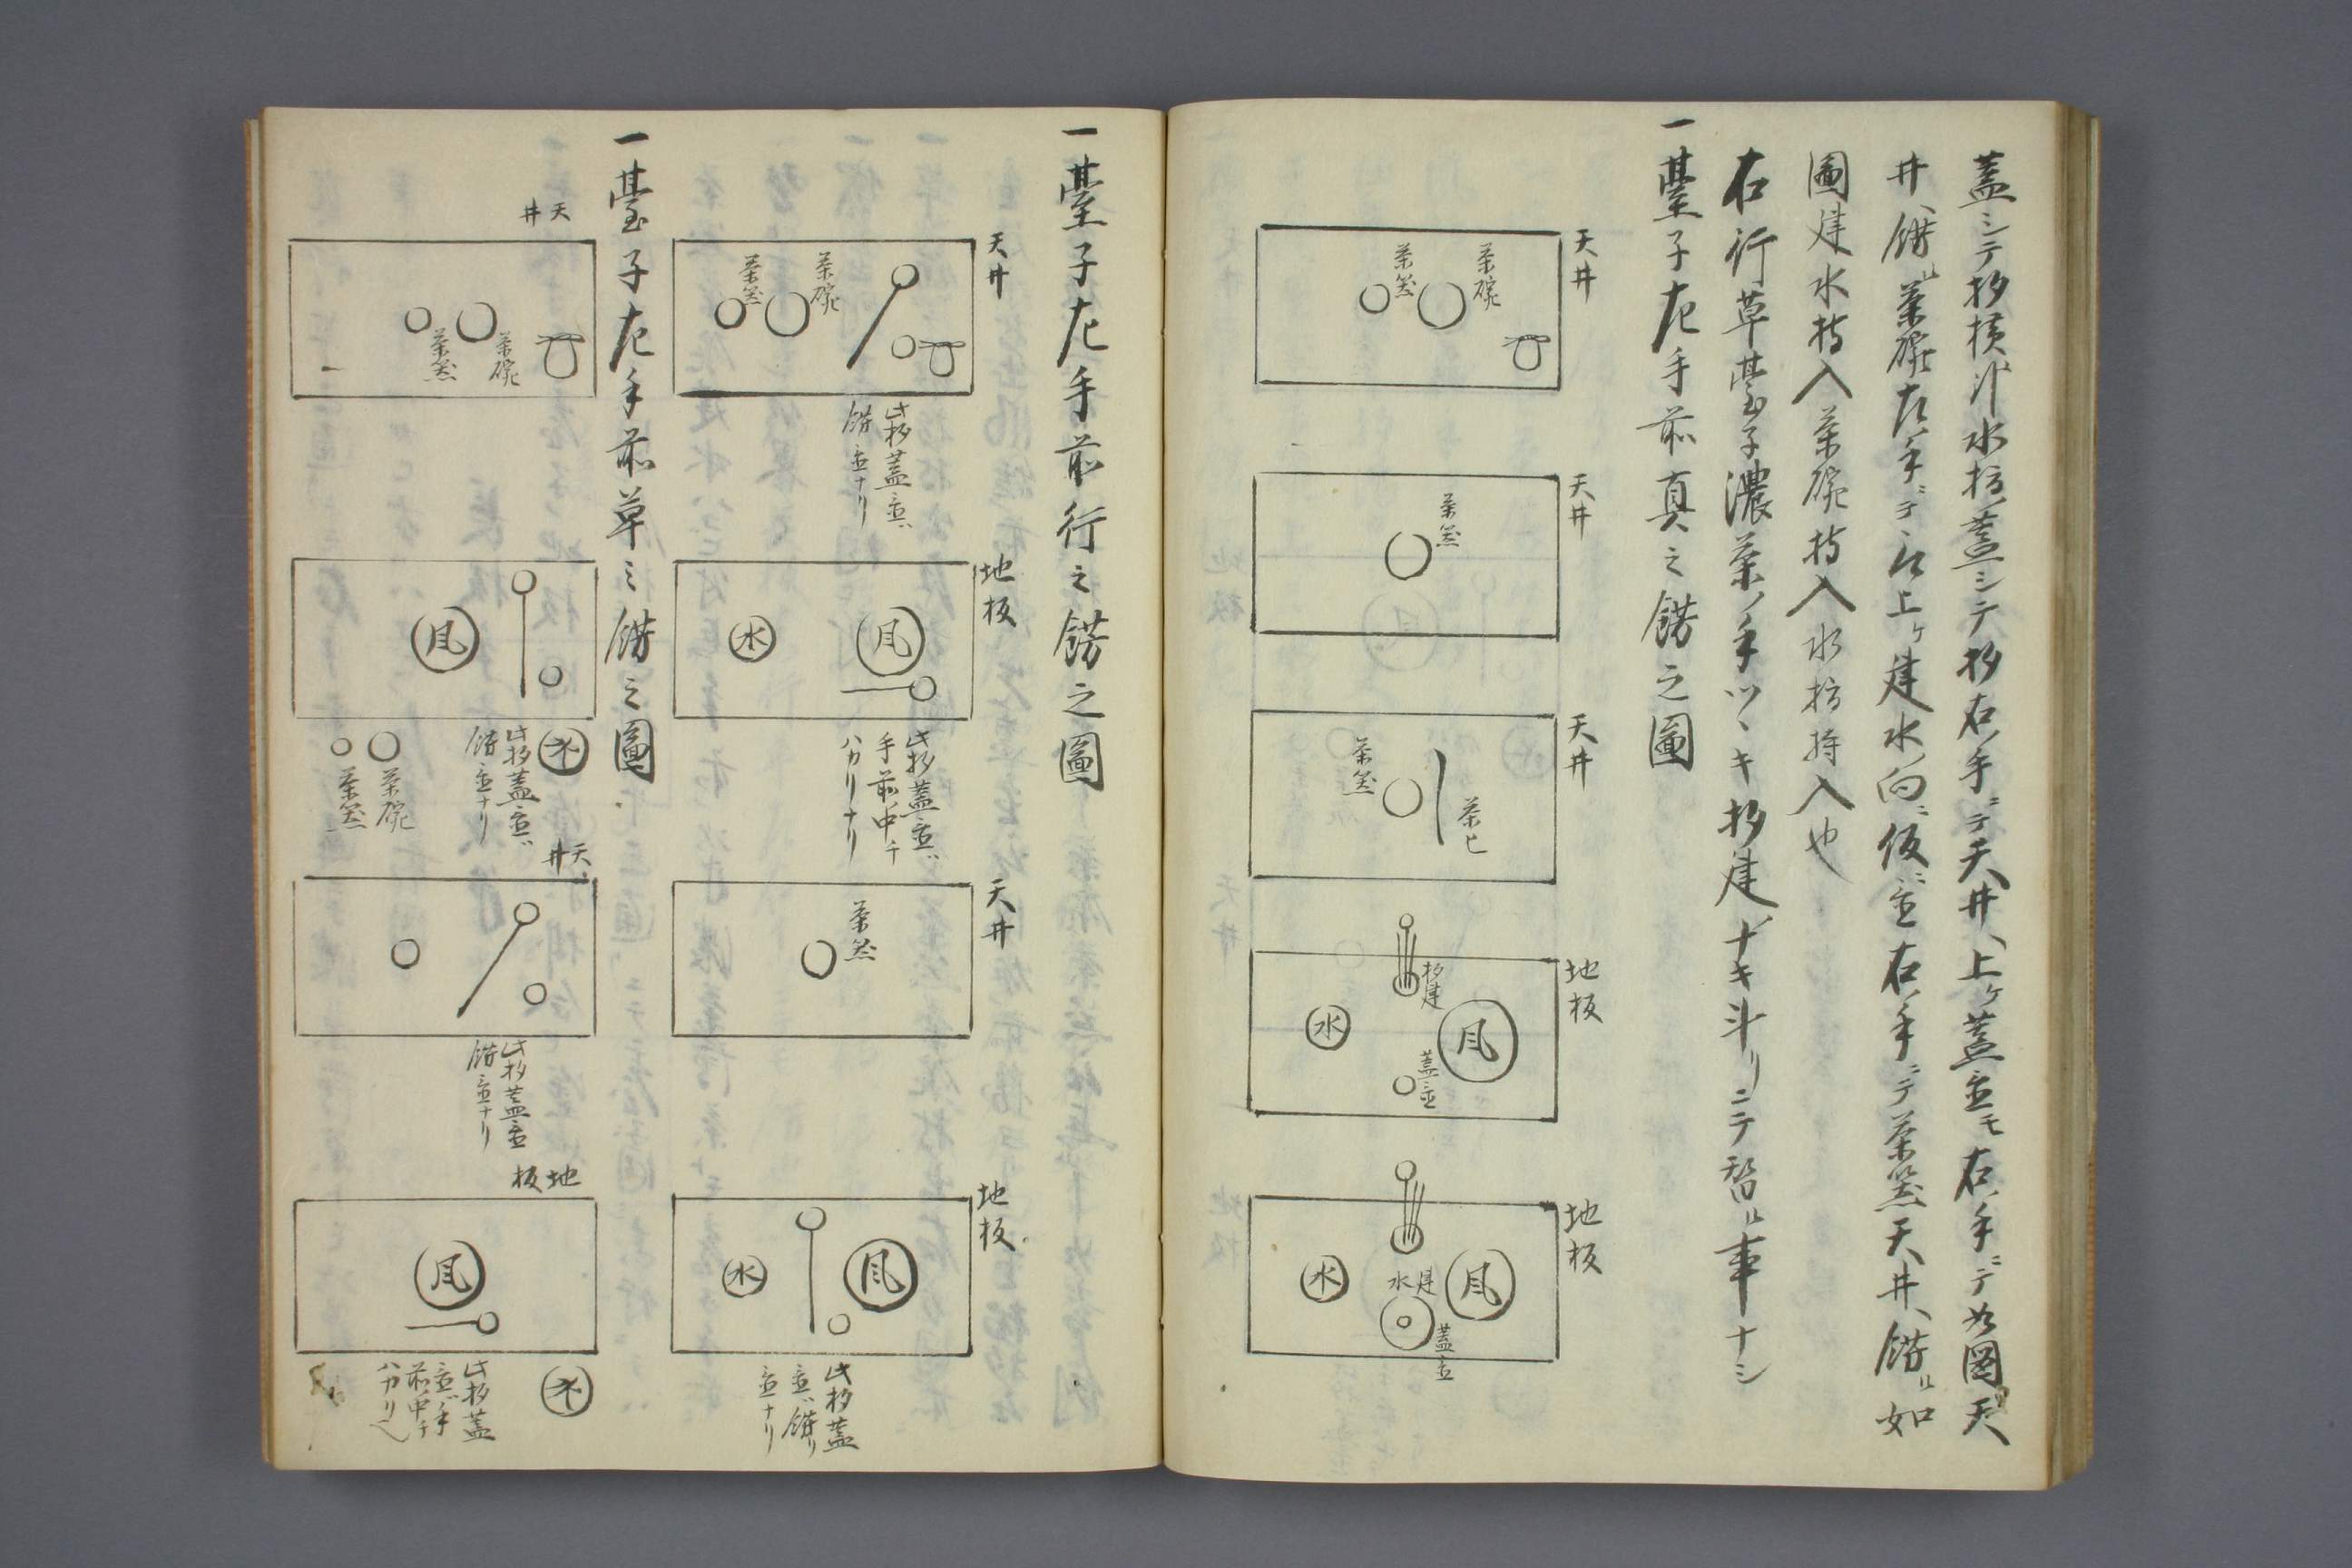 蓋シテ杓横ニ汁水指ノ蓋シテ杓右ノ手ニテ天井ヘ上ケ蓋置モ右ノ手ニテ如圖天
井ヘ餝ル茶碗左ノ手ニテ上ケ建水ノ向ニ仮ニ置右ノ手ニテ茶箆天井ヘ餝ル如
圖建水持入茶碗持入水指持入也
右行草臺子濃茶ノ手ツヽキ杓建ナキ斗リニテ替ル事ナシ
一臺子左手前真之餝之圖
天井
茶碗
茶箆
天井
茶箆
天井
茶匕
茶箆
地板
杓建
風
水
蓋置
地板
風
建水
水
蓋置
一臺子左手前行之餝之圖
天井
茶碗
茶箆
此杓蓋置ハ
餝置ナリ
地板
風
水
此杓蓋置ハ
手前中チ
ハカリナリ
天井
茶箆
地板
風
水
此杓蓋
置ハ餝リ
置ナリ
一臺子左手前草之餝之圖
天井
茶碗
茶箆
風
水
此杓蓋置ハ
餝置ナリ
茶碗
茶箆
天井
此杓蓋置
餝置ナリ
地板
風
水
此杓蓋
置ハ手
前中チ
ハカリ